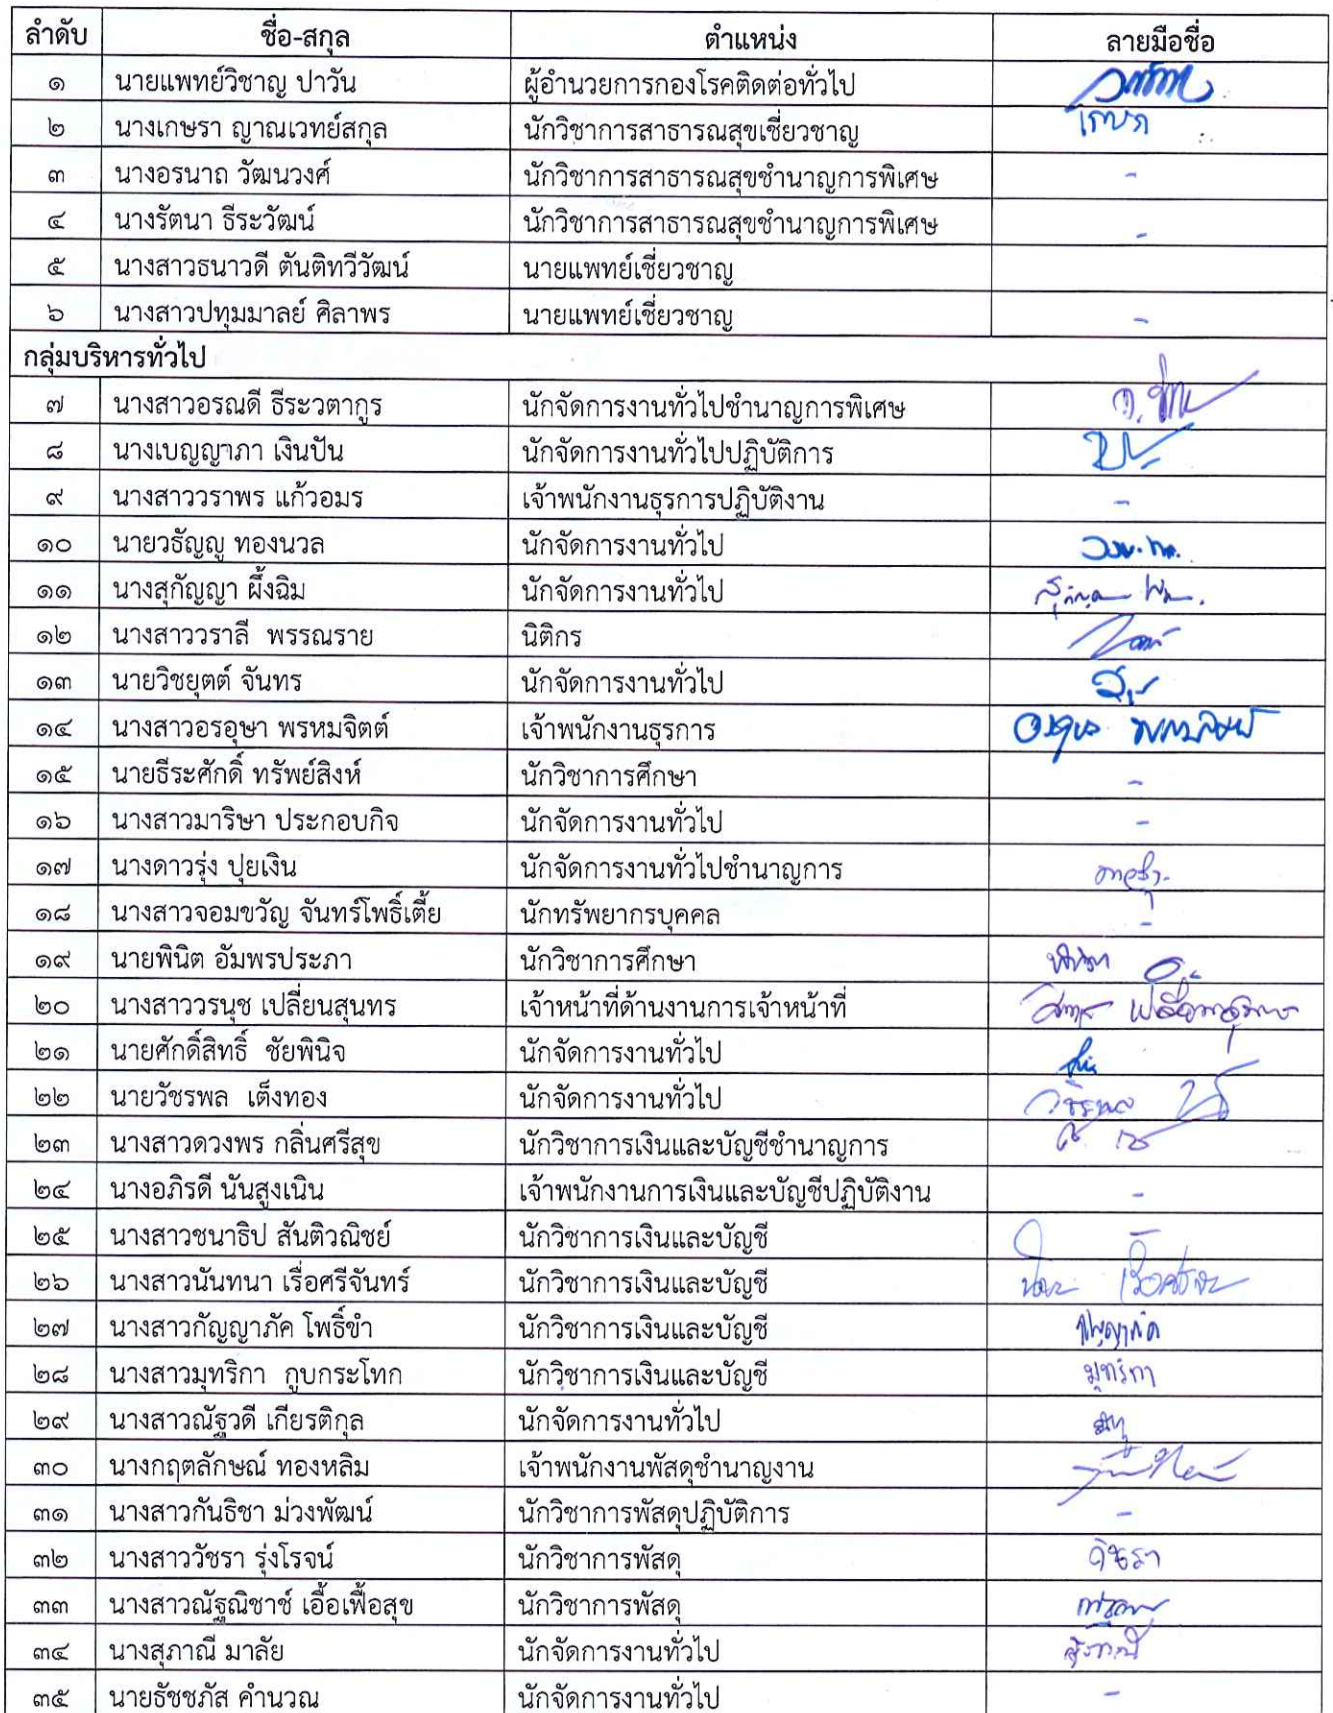 ลำดับ ชื่อ-สกุล ตำแหน่ง ลายมือชื่อ
๑ นายแพทย์วิชาญ ปาวัน ผู้อำนวยการกองโรคติดต่อทั่วไป
๒ นางเกษรา ญาณเวทย์สกุล นักวิชาการสาธารณสุขเชี่ยวชาญ เกษรา
๓ นางอรนาถ วัฒนวงศ์ นักวิชาการสาธารณสุขชำนาญการพิเศษ -
๔ นางรัตนา ธีระวัฒน์ นักวิชาการสาธารณสุขชำนาญการพิเศษ -
๕ นางสาวธนาวดี ตันติทวีวัฒน์ นายแพทย์เชี่ยวชาญ
๖ นางสาวปทุมมาลย์ ศิลาพร นายแพทย์เชี่ยวชาญ -
กลุ่มบริหารทั่วไป
๗ นางสาวอรณดี ธีระวตากูร นักจัดการงานทั่วไปชำนาญการพิเศษ
๘ นางเบญญาภา เงินปัน นักจัดการงานทั่วไปปฏิบัติการ
๙ นางสาววราพร แก้วอมร เจ้าพนักงานธุรการปฏิบัติงาน -
๑๐ นายวธัญญู ทองนวล นักจัดการงานทั่วไป
๑๑ นางสุกัญญา ผึ้งฉิม นักจัดการงานทั่วไป
๑๒ นางสาววราลี พรรณราย นิติกร
๑๓ นายวิชยุตต์ จันทร นักจัดการงานทั่วไป
๑๔ นางสาวอรอุษา พรหมจิตต์ เจ้าพนักงานธุรการ
๑๕ นายธีระศักดิ์ ทรัพย์สิงห์ นักวิชาการศึกษา -
๑๖ นางสาวมาริษา ประกอบกิจ นักจัดการงานทั่วไป -
๑๗ นางดาวรุ่ง ปุยเงิน นักจัดการงานทั่วไปชำนาญการ
๑๘ นางสาวจอมขวัญ จันทร์โพธิ์เตี้ย นักทรัพยากรบุคคล -
๑๙ นายพินิต อัมพรประภา นักวิชาการศึกษา
๒๐ นางสาววรนุช เปลี่ยนสุนทร เจ้าหน้าที่ด้านงานการเจ้าหน้าที่
๒๑ นายศักดิ์สิทธิ์ ชัยพินิจ นักจัดการงานทั่วไป
๒๒ นายวัชรพล เต็งทอง นักจัดการงานทั่วไป วัชรพล
๒๓ นางสาวดวงพร กลิ่นศรีสุข นักวิชาการเงินและบัญชีชำนาญการ
๒๔ นางอภิรดี นันสูงเนิน เจ้าพนักงานการเงินและบัญชีปฏิบัติงาน -
๒๕ นางสาวชนาธิป สันติวณิชย์ นักวิชาการเงินและบัญชี
๒๖ นางสาวนันทนา เรื่อศรีจันทร์ นักวิชาการเงินและบัญชี
๒๗ นางสาวกัญญาภัค โพธิ์ขำ นักวิชาการเงินและบัญชี กัญญาภัค
๒๘ นางสาวมุทริกา กูบกระโทก นักวิชาการเงินและบัญชี มุทริกา
๒๙ นางสาวณัฐวดี เกียรติกุล นักจัดการงานทั่วไป
๓๐ นางกฤตลักษณ์ ทองหลิม เจ้าพนักงานพัสดุชำนาญงาน
๓๑ นางสาวกันธิชา ม่วงพัฒน์ นักวิชาการพัสดุปฏิบัติการ -
๓๒ นางสาววัชรา รุ่งโรจน์ นักวิชาการพัสดุ วัชรา
๓๓ นางสาวณัฐณิชาช์ เอื้อเฟื้อสุข นักวิชาการพัสดุ
๓๔ นางสุภาณี มาลัย นักจัดการงานทั่วไป สุภาณี
๓๕ นายธัชชภัส คำนวณ นักจัดการงานทั่วไป -